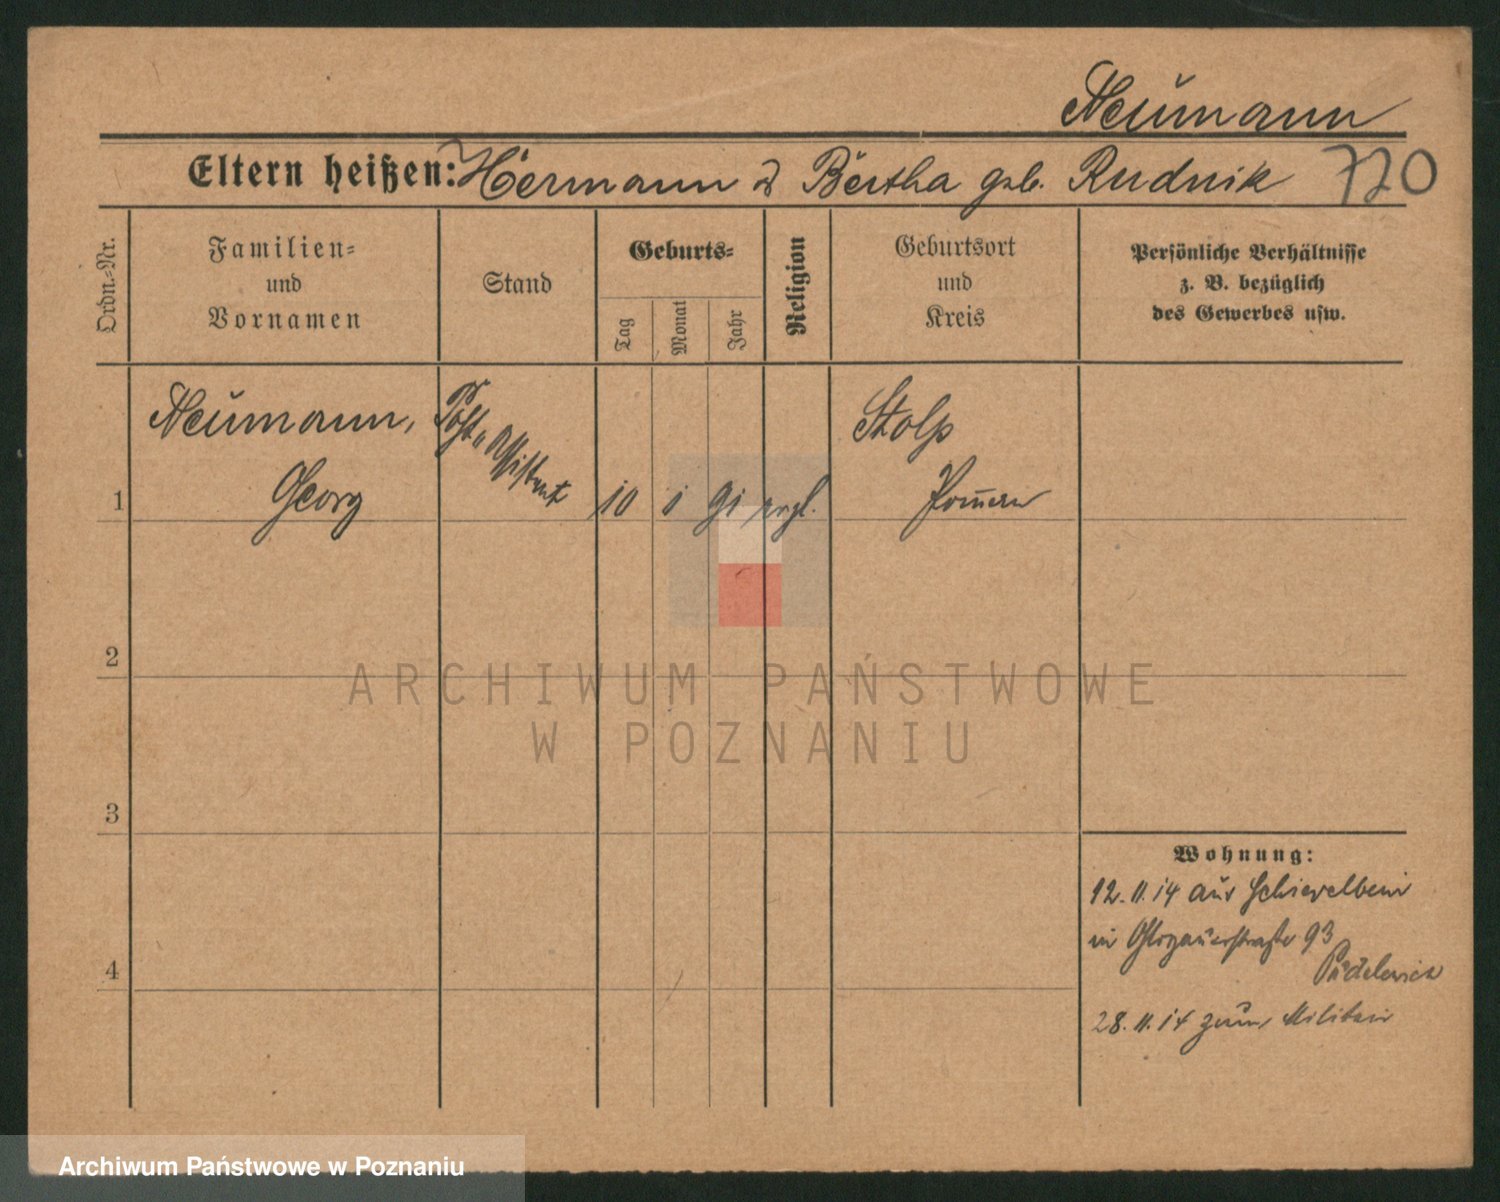 Neumann
Eltern heißen: Hermann & Bertha geb. Rudnik 720
Ordn.-Nr.
Familien-
und
Vornamen
Stand
Geburts-
Tag
Monat
Jahr
Religion
Geburtsort
und
Kreis
Persönliche Verhältnisse
z. B. bezüglich
des Gewerbes usw.
Neumann, Post-Assistent Stolp
1 Georg 10 1 91 evgl. Pom̅ern
2
ARCHIWUM PAŃSTWOWE
W POZNANIU
3
Wohnung:
12. 11. 14 aus Schievelbein
in Glogauerstraße 93
4
28. 11. 14 zum Militair
Archiwum Państwowe w Poznaniu